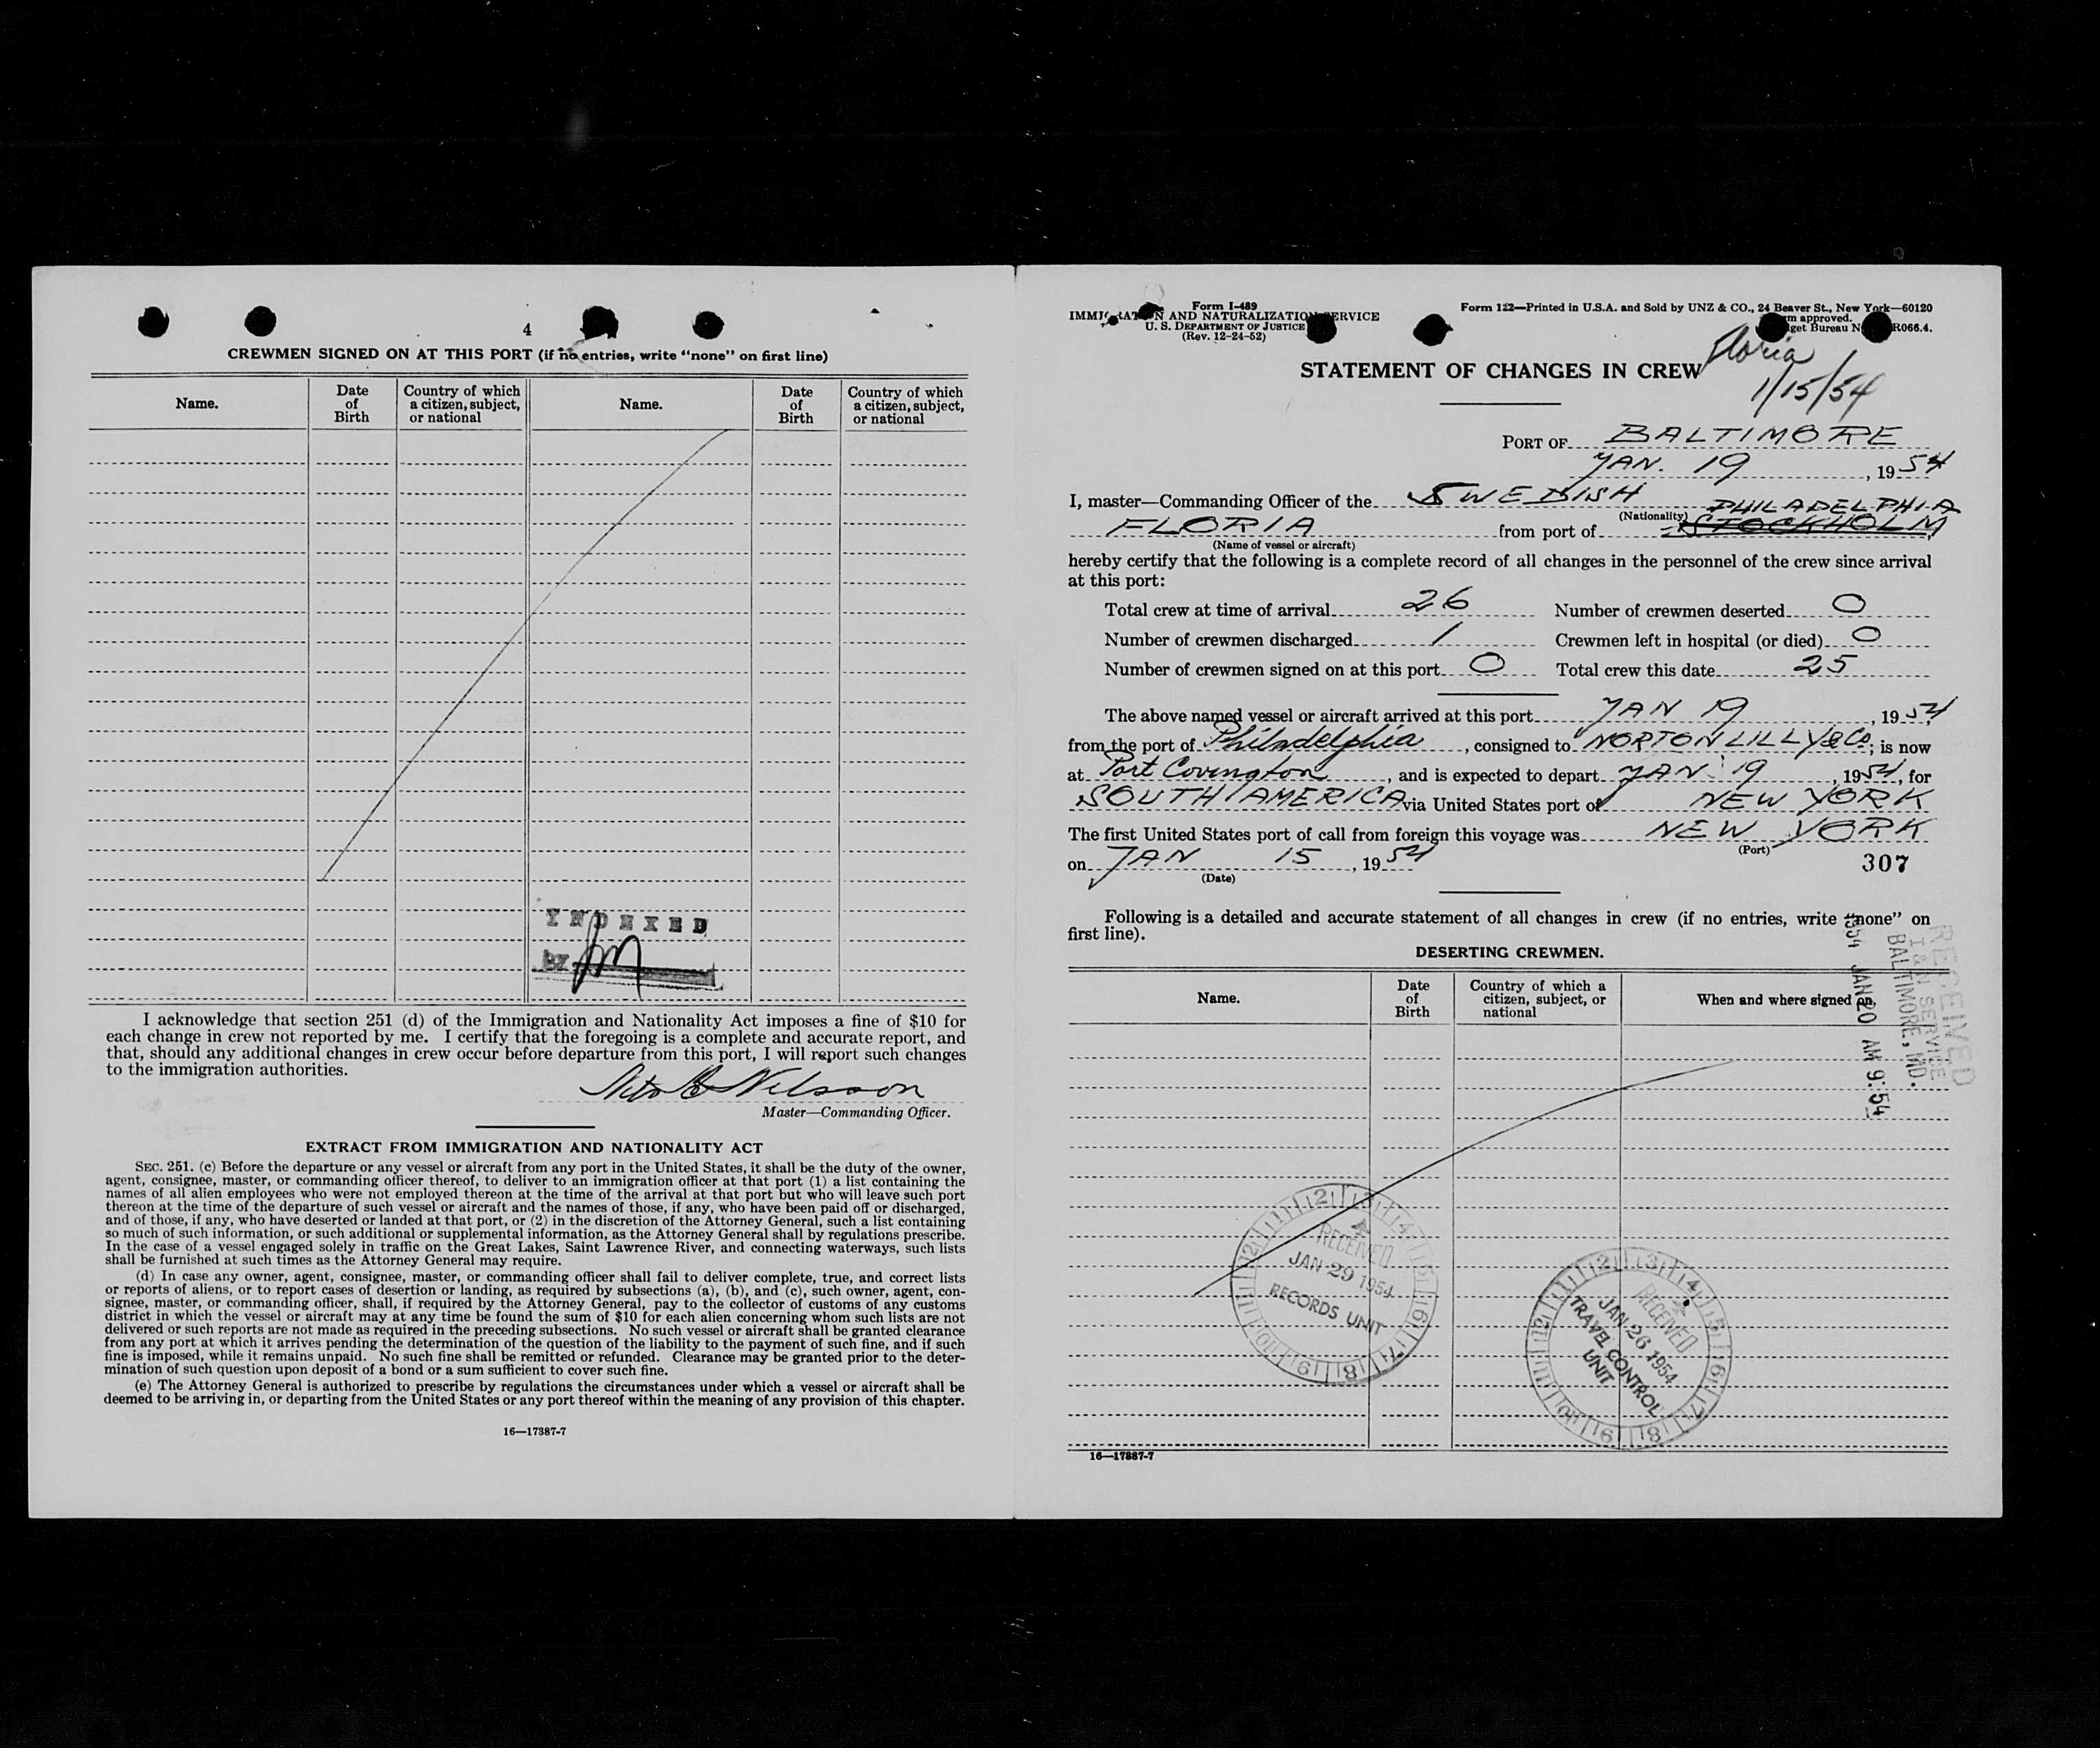 4
CREWMEN SIGNED ON AT THIS PORT (if no entries, write "none" on first line)
Name. Date of Birth Country of which a citizen, subject, or national Name. Date of Birth Country of which a citizen, subject, or national
INDEXED
BY
I acknowledge that section 251 (d) of the Immigration and Nationality Act imposes a fine of $10 for
each change in crew not reported by me. I certify that the foregoing is a complete and accurate report, and
that, should any additional changes in crew occur before departure from this port, I will report such changes
to the immigration authorities.
Nilsson
Master—Commanding Officer.
EXTRACT FROM IMMIGRATION AND NATIONALITY ACT
SEC. 251. (c) Before the departure or any vessel or aircraft from any port in the United States, it shall be the duty of the owner,
agent, consignee, master, or commanding officer thereof, to deliver to an immigration officer at that port (1) a list containing the
names of all alien employees who were not employed thereon at the time of the arrival at that port but who will leave such port
thereon at the time of the departure of such vessel or aircraft and the names of those, if any, who have been paid off or discharged,
and of those, if any, who have deserted or landed at that port, or (2) in the discretion of the Attorney General, such a list containing
so much of such information, or such additional or supplemental information, as the Attorney General shall by regulations prescribe.
In the case of a vessel engaged solely in traffic on the Great Lakes, Saint Lawrence River, and connecting waterways, such lists
shall be furnished at such times as the Attorney General may require.
(d) In case any owner, agent, consignee, master, or commanding officer shall fail to deliver complete, true, and correct lists
or reports of aliens, or to report cases of desertion or landing, as required by subsections (a), (b), and (c), such owner, agent, con-
signee, master, or commanding officer, shall, if required by the Attorney General, pay to the collector of customs of any customs
district in which the vessel or aircraft may at any time be found the sum of $10 for each alien concerning whom such lists are not
delivered or such reports are not made as required in the preceding subsections. No such vessel or aircraft shall be granted clearance
from any port at which it arrives pending the determination of the question of the liability to the payment of such fine, and if such
fine is imposed, while it remains unpaid. No such fine shall be remitted or refunded. Clearance may be granted prior to the deter-
mination of such question upon deposit of a bond or a sum sufficient to cover such fine.
(e) The Attorney General is authorized to prescribe by regulations the circumstances under which a vessel or aircraft shall be
deemed to be arriving in, or departing from the United States or any port thereof within the meaning of any provision of this chapter.
16—17387-7
Form I-489
IMMIGRATION AND NATURALIZATION SERVICE
U. S. DEPARTMENT OF JUSTICE
(Rev. 12-24-52)
Form 122—Printed in U.S.A. and Sold by UNZ & CO., 24 Beaver St., New York—60120
approved.
Bureau R066.4.
STATEMENT OF CHANGES IN CREW
Floria
1/15/54
PORT OF BALTIMORE
JAN. 19, 1954
I, master—Commanding Officer of the SWEDISH
(Nationality) PHILADELPHIA
FLORIA from port of STOCKHOLM
(Name of vessel or aircraft)
hereby certify that the following is a complete record of all changes in the personnel of the crew since arrival
at this port:
Total crew at time of arrival 26 Number of crewmen deserted 0
Number of crewmen discharged 1 Crewmen left in hospital (or died) 0
Number of crewmen signed on at this port 0 Total crew this date 25
The above named vessel or aircraft arrived at this port JAN 19, 1954,
from the port of Philadelphia, consigned to NORTON LILLY & Co; is now
at Port Covington, and is expected to depart JAN 19, 1954, for
SOUTH AMERICA via United States port of NEW YORK
The first United States port of call from foreign this voyage was NEW YORK
(Port)
on JAN 15, 1954
(Date)
307
Following is a detailed and accurate statement of all changes in crew (if no entries, write "none" on
first line).
DESERTING CREWMEN.
Name. Date of Birth Country of which a citizen, subject, or national When and where signed on.
RECEIVED
I & N SERVICE
BALTIMORE, MD.
1954 JAN 20 AM 9:54
RECEIVED
JAN 29 1954
RECORDS UNIT
RECEIVED
JAN 26 1954
TRAVEL CONTROL
UNIT
16—17387-7